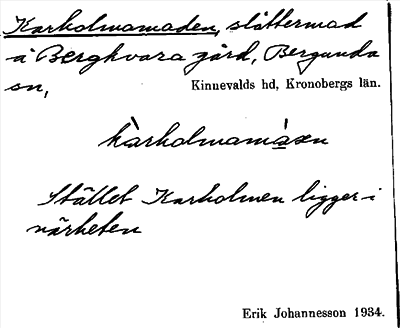 Karholmamaden, slåttermad
å Bergkvara gård, Bergunda
sn,
Kinnevalds hd, Kronobergs län.
kàrholmamàᶁen
Stället Karholmen ligger i
närheten
Erik Johannesson 1934.